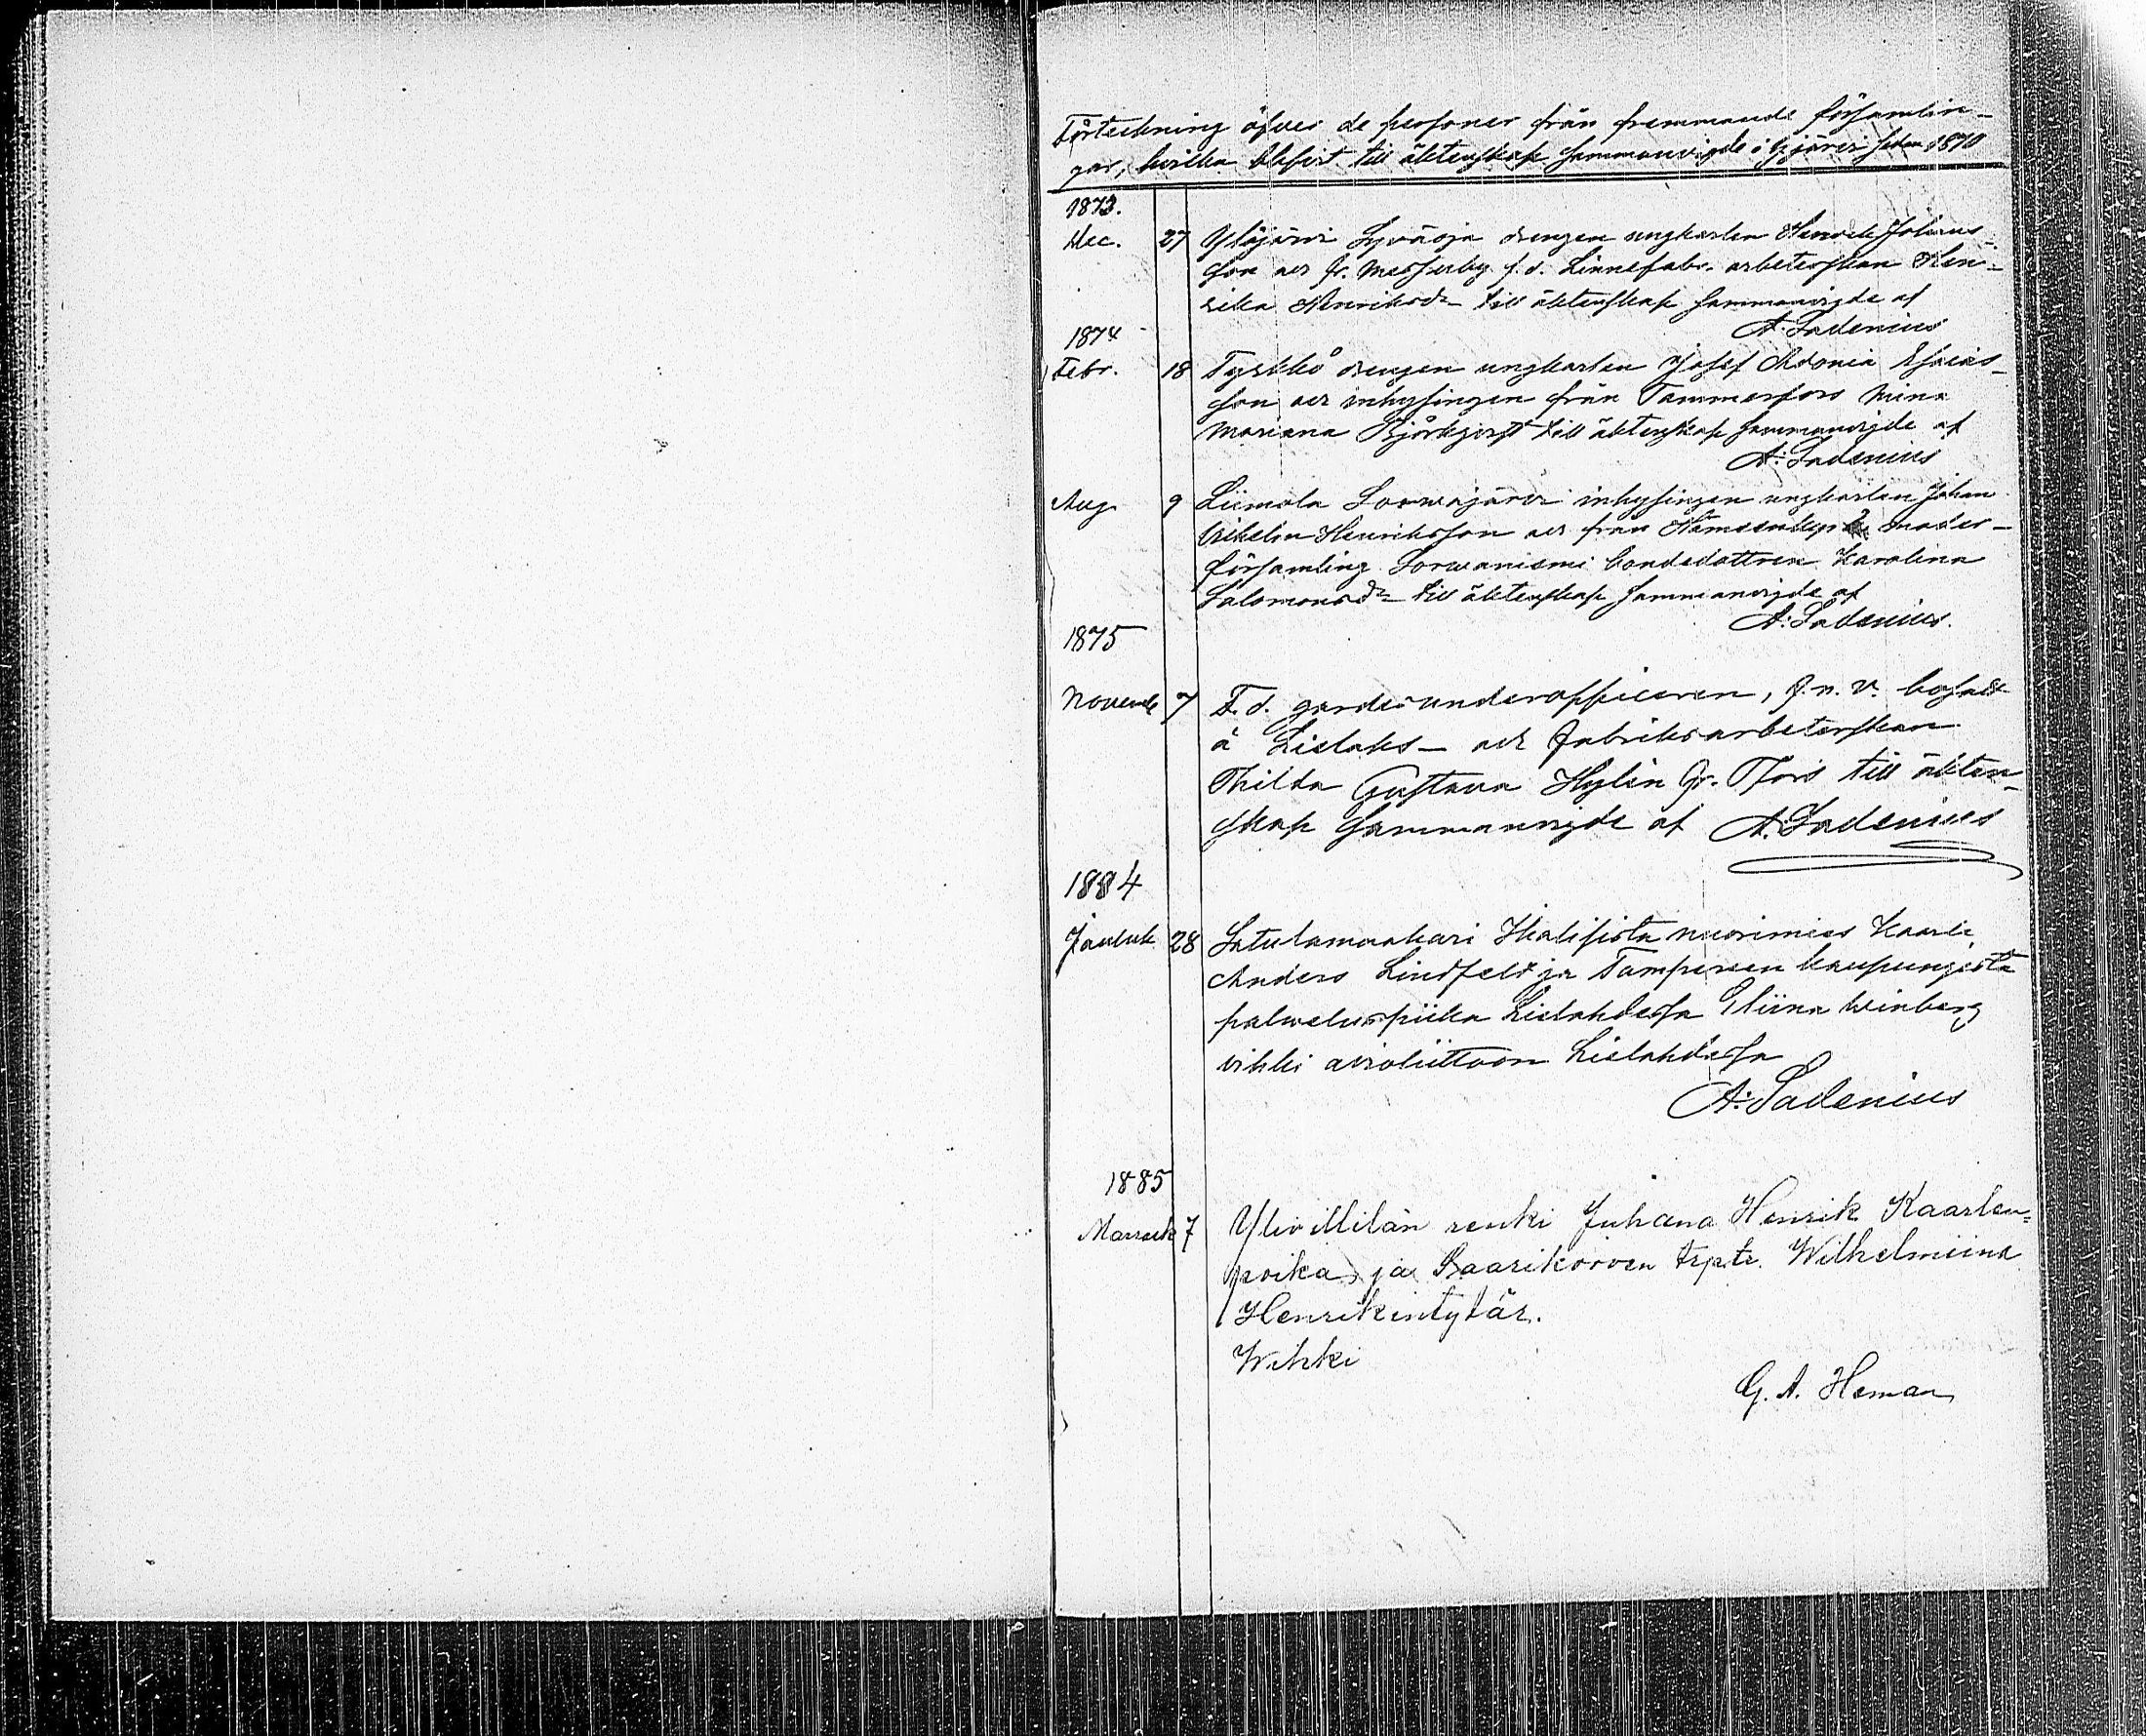 Förteckning öfver de personer från fremmande församlin-
gar, hvilka blifvit till äktenskap sammanvigde i Ylöjärvi sedan 1870
1873.
Dec. 27 Ylöjärvi Syväoja drengen ungkarlen Henrik Johans-
son och fr. Messuby f.d. Linnefabr. arbeterskan Hen-
rika Henriksdr till äktenskap sammanvigde af
A. Ladenius
1874
Febr. 18 drengen ungkarlen Josef Adonia Esaias-
son och inhysingen från Tammerfors Mina
Mariana till äktenskap sammanvigde af
A. Ladenius
Aug. 9 Liimola inhysingen ungkarlen Johan
Vilhelm Henriksson och från moder-
församling bondedottren Karolina
Salomonsdr till äktenskap sammanvigde af
A. Ladenius.
1875
Novemb 7 F.d. gardesunderofficeren, f.n.v. bosatt
å Lielaks och fabriksarbeterskan
Thilda Gustava Hylin fr. Tfors till äkten-
skap sammanvigde af A. Ladenius
1884
Jouluk 28 Satulamaakari nuorimies Kaarle
Anders Lindfelt ja Tampereen kaupungista
palveluspiika Lielahdessa Eliina Winberg
vihki avioliittoon Lielahdessa
A. Ladenius
1885
Marrask 7 Ylivillilän renki Juhana Henrik Kaarlen=
poika ja Saarikorven Wilhelmiina
Henrikintytär.
Wihki
G. A. Heman